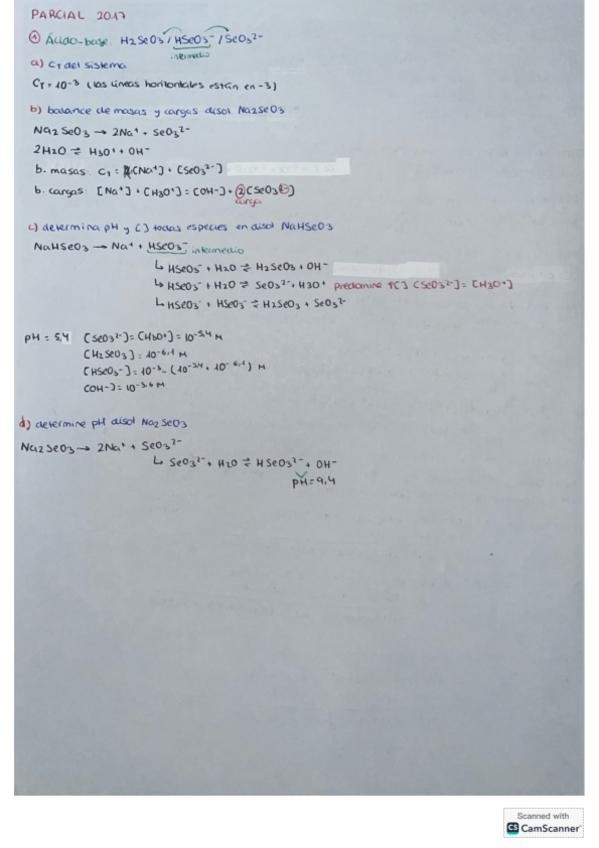 PARCIAL 2017
① Ácido-base: H2SeO3 / HSeO3⁻ / SeO3²⁻
intermedio
a) CT del sistema
CT = 10⁻³ (las líneas horizontales están en -3)
b) balance de masas y cargas disol. Na2SeO3
Na2SeO3 → 2Na⁺ + SeO3²⁻
2H2O ⇌ H3O⁺ + OH⁻
b. masas: CT = [Na⁺] + [SeO3²⁻]
b. cargas: [Na⁺] + [H3O⁺] = [OH⁻] + 2[SeO3²⁻]
carga
c) determina pH y [] todas especies en disol NaHSeO3
NaHSeO3 → Na⁺ + HSeO3⁻ intermedio
↳ HSeO3⁻ + H2O ⇌ H2SeO3 + OH⁻
↳ HSeO3⁻ + H2O ⇌ SeO3²⁻ + H3O⁺ Predomina ↑[] [SeO3²⁻] = [H3O⁺]
↳ HSeO3⁻ + HSeO3⁻ ⇌ H2SeO3 + SeO3²⁻
pH = 5,4 [SeO3²⁻] = [H3O⁺] = 10⁻⁵,⁴ M
[H2SeO3] = 10⁻⁶,¹ M
[HSeO3⁻] = 10⁻³ - (10⁻⁵,⁴ + 10⁻⁶,¹) M
[OH⁻] = 10⁻⁸,⁶ M
d) determine pH disol Na2SeO3
Na2SeO3 → 2Na⁺ + SeO3²⁻
↳ SeO3²⁻ + H2O ⇌ HSeO3²⁻ + OH⁻
pH = 9,4
Scanned with
CS CamScanner